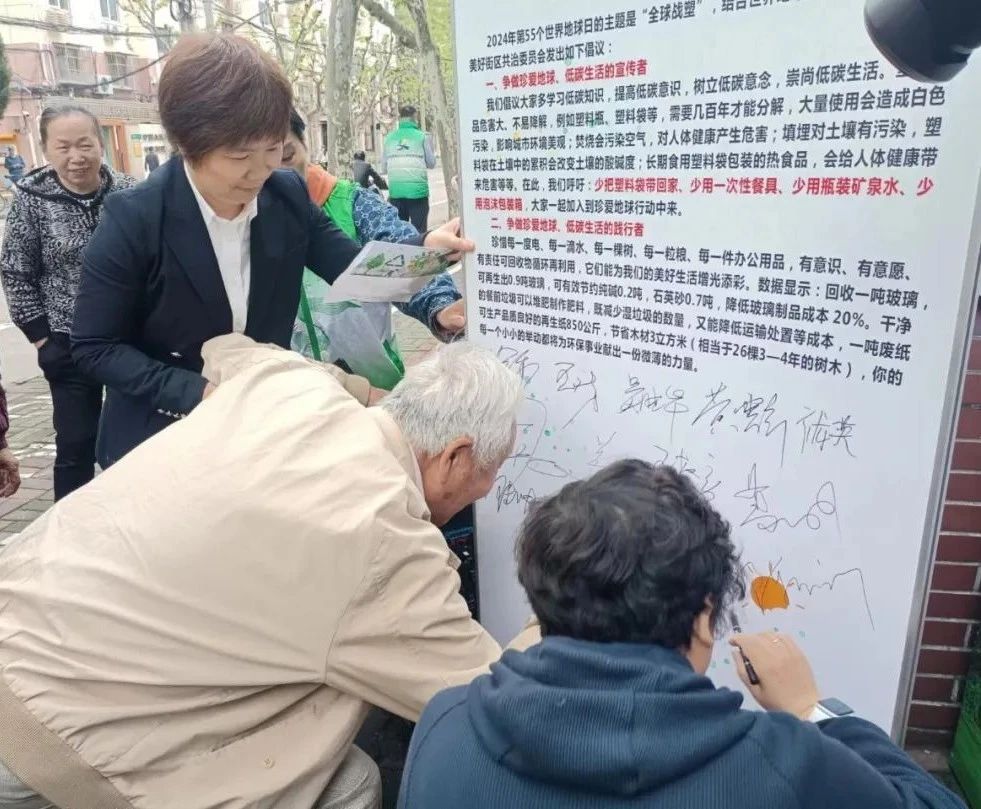 2024年第55个世界地球日的主题是“全球战塑”，结合世界地
美好街区共治委员会发出如下倡议：
一、争做珍爱地球、低碳生活的宣传者
我们倡议大家多学习低碳知识，提高低碳意识，树立低碳意念，崇尚低碳生活。
品危害大、不易降解，例如塑料瓶、塑料袋等，需要几百年才能分解，大量使用会造成白色
污染，影响城市环境美观；焚烧会污染空气，对人体健康产生危害；填埋对土壤有污染，塑
料袋在土壤中的累积会改变土壤的酸碱度；长期食用塑料袋包装的热食品，会给人体健康带
来危害等等。在此，我们呼吁：少把塑料袋带回家、少用一次性餐具、少用瓶装矿泉水、少
用泡沫包装箱，大家一起加入到珍爱地球行动中来。
二、争做珍爱地球、低碳生活的践行者
珍惜每一度电、每一滴水、每一棵树、每一粒粮、每一件办公用品，有意识、有意愿、
有责任可回收物循环再利用，它们能为我们的美好生活增光添彩。数据显示：回收一吨玻璃，
可再生出0.9吨玻璃，可有效节约纯碱0.2吨，石英砂0.7吨，降低玻璃制品成本 20%。干净
的餐前垃圾可以堆肥制作肥料，既减少湿垃圾的数量，又能降低运输处置等成本，一吨废纸
可生产品质良好的再生纸850公斤，节省木材3立方米（相当于26棵3—4年的树木），你的
每一个小小的举动都将为环保事业献出一份微薄的力量。